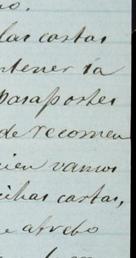 o.
las cartas
ntener la
pasaportes
de recomen
uien vamos
cihas cartas,
e atrebo